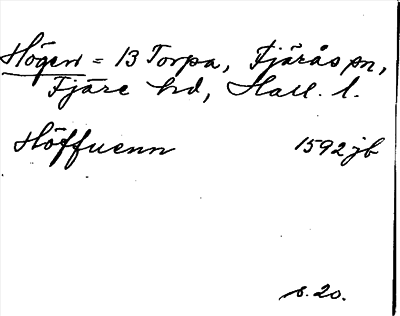 Högen = 13 Torpa, Fjärås sn,
Fjäre hd, Hall. l.
Höffuenn 1592 jb
s. 20.